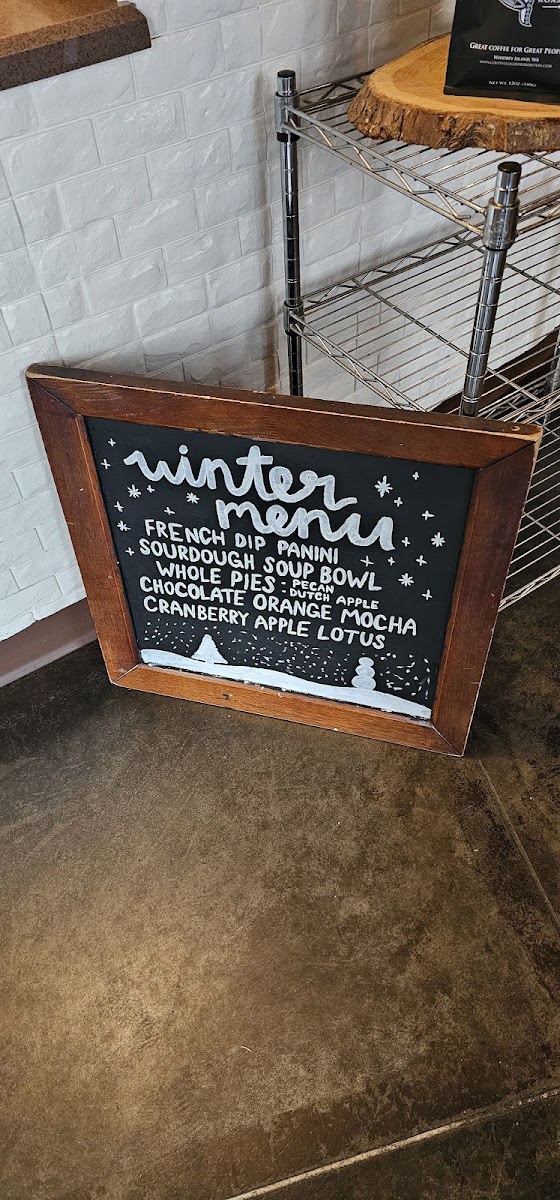 GREAT COFFEE FOR GREAT PEOPLE
WHIDBEY ISLAND, WA
NET WT. 12OZ. (340G)
winter
menu
FRENCH DIP PANINI
SOURDOUGH SOUP BOWL
WHOLE PIES - PECAN
- DUTCH APPLE
CHOCOLATE ORANGE MOCHA
CRANBERRY APPLE LOTUS